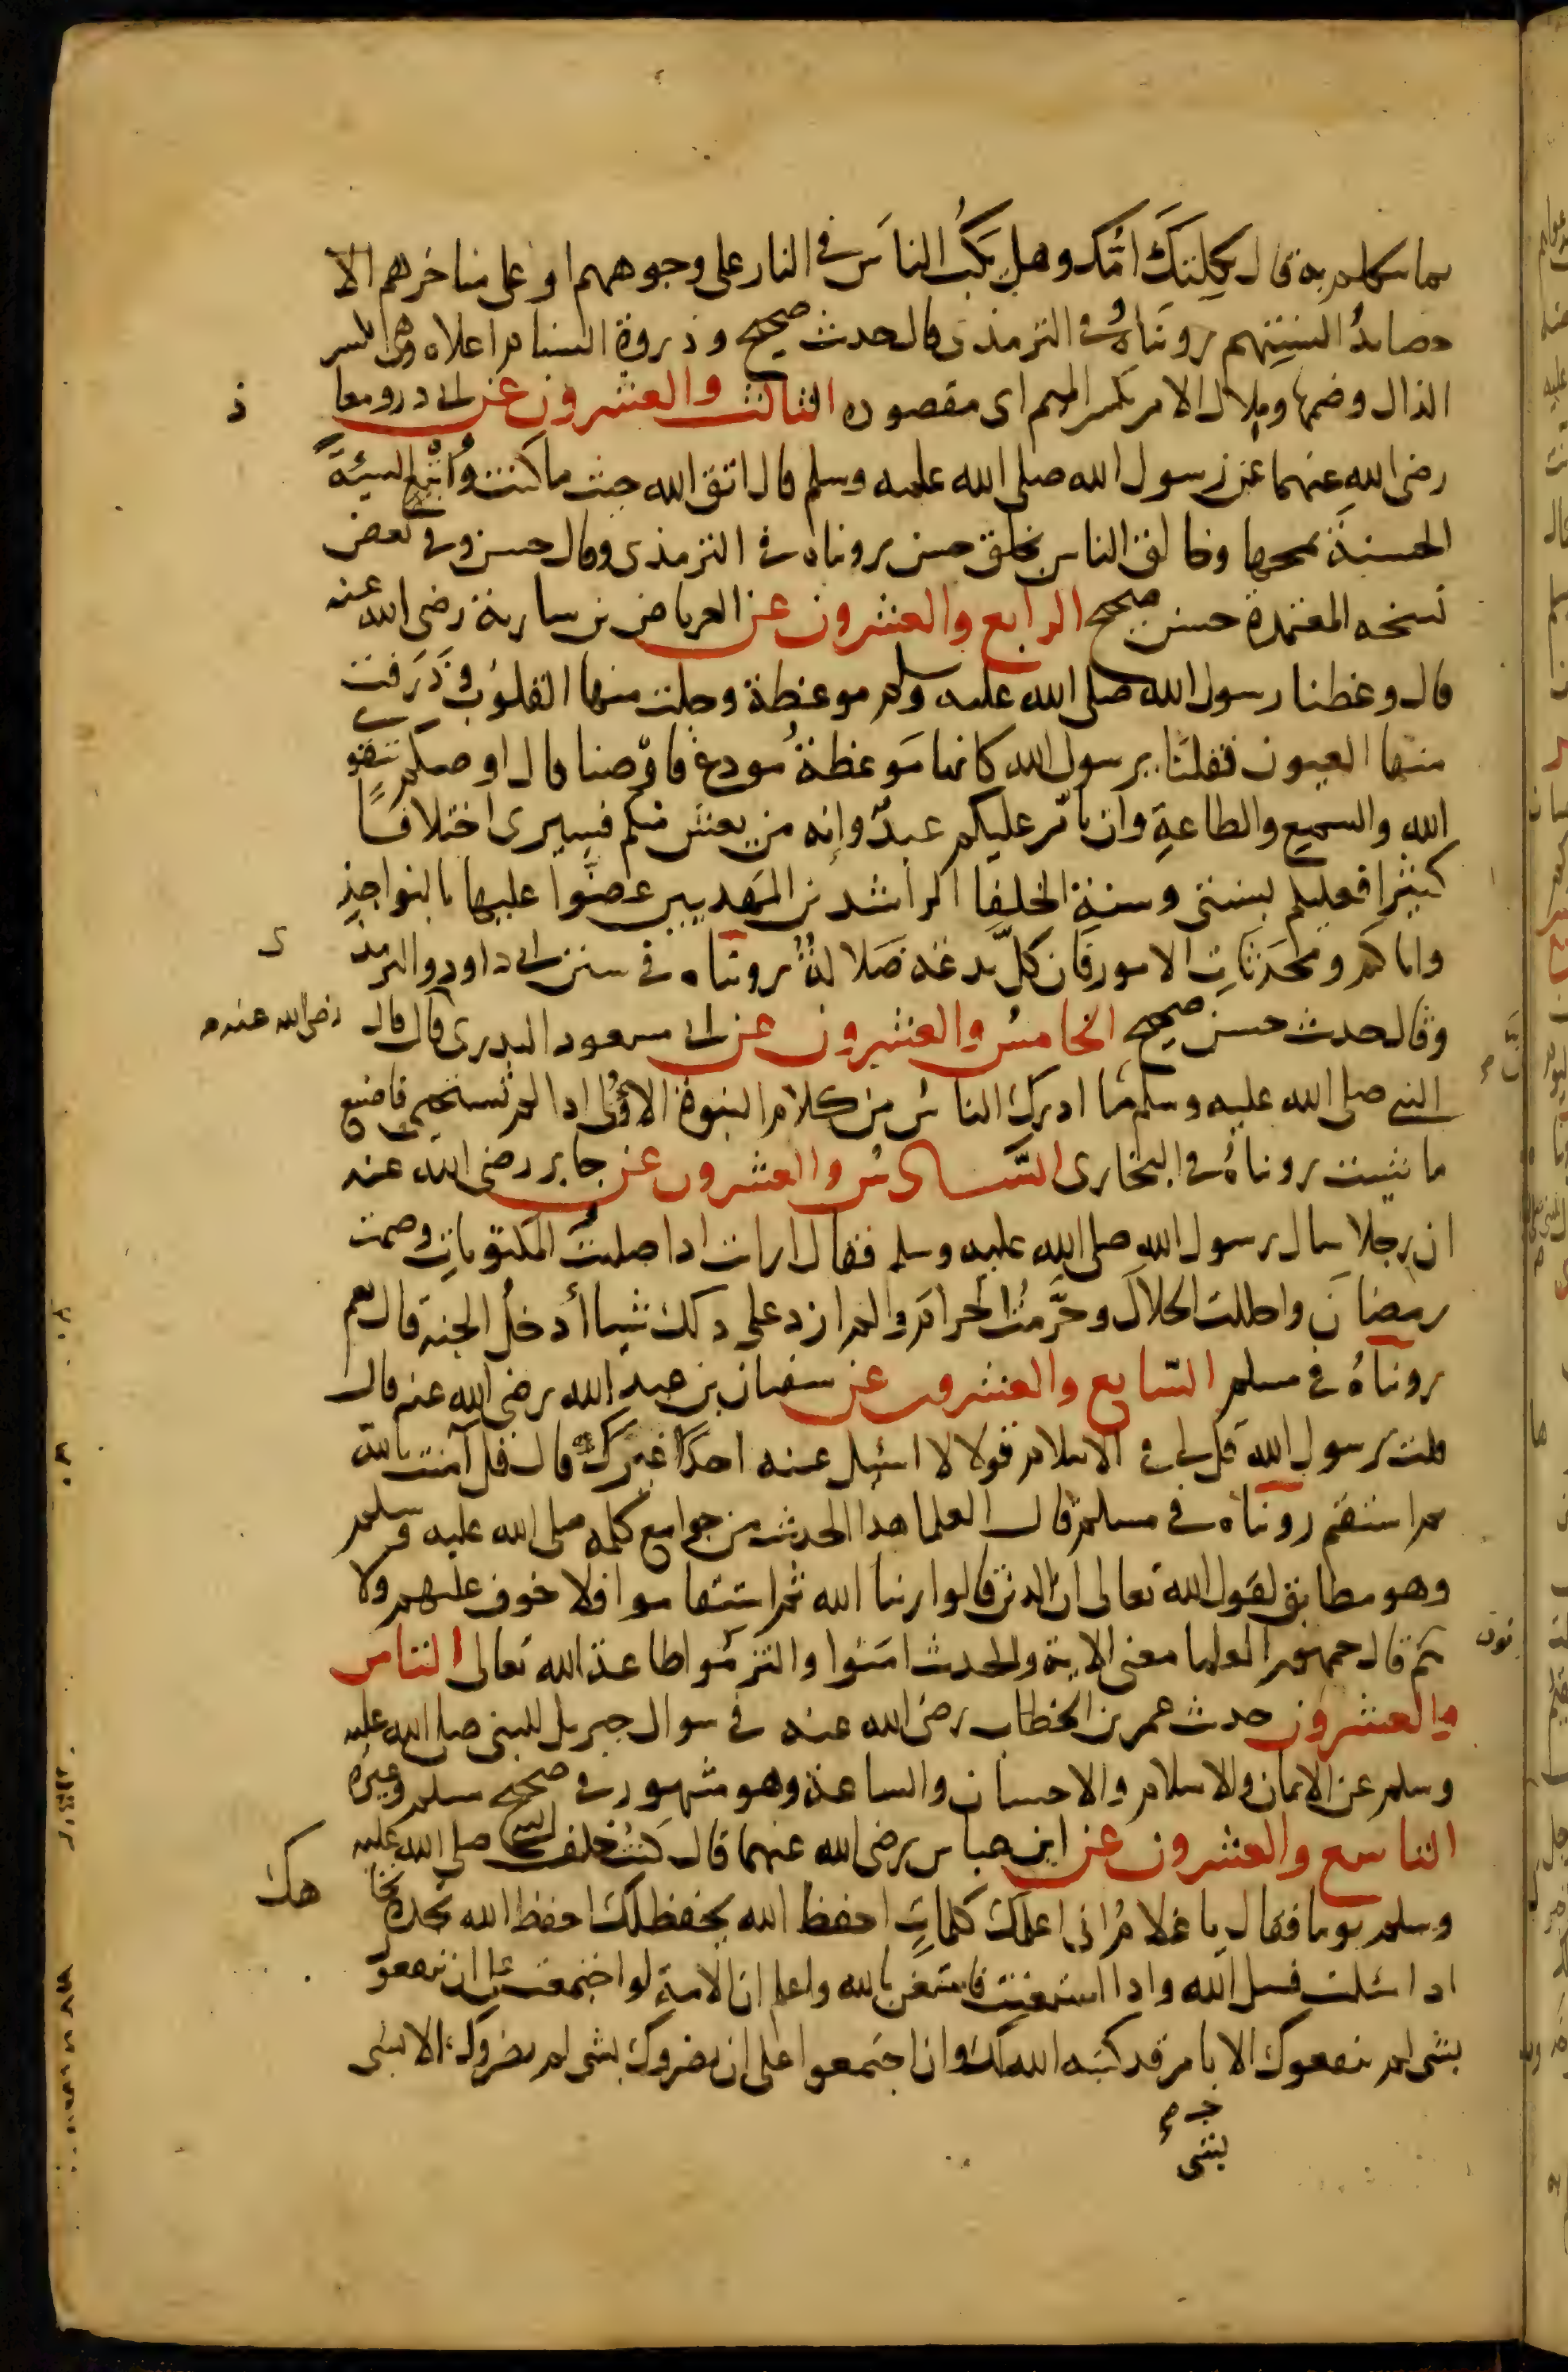 بما نتكلم به قال ثكلتك امّك وهل يَكُبُّ الناسَ في النار على وجوههم او على مناخرهم الا
حصائدُ السنتهم رويناهُ في الترمذي وقال حديث صحيح وذروة السنام اعلاه وهى بكسر
الذال وضمها وملاك الامر بكسر الميم اى مقصوده الثالث والعشرون عن ابي ذر ومعا ذ
رضي الله عنهما عن رسول الله صلى الله عليه وسلم قال اتق الله حيث ما كنت وأَتْبِع السيئةَ
الحسنةَ تمحها وخالق الناس بخلق حسن رويناه في الترمذي وقال حسن وفى بعض
نسخه المعتمدة حسن صحيح الرابع والعشرون عن العرباض بن سارية رضى الله عنه
قال وعظنا رسول الله صلى الله عليه وسلم موعظة وجلت منها القلوبُ وذَرَفت
منها العيون فقلنا يرسول الله كانها مَوعظةُ مُودع فاوْصنا قال اوصيكم بتقوى
الله والسمع والطاعةِ وان تأمّر عليكم عبدٌ وإنه من يعش منكم فسيرى اختلافًا
كثيرًا فعليكم بسنتى وسنة الخلفا الراشدين المهديين عضّوا عليها بالنواجذِ
واياكم ومحدَثاتِ الامور فان كلّ بدعة ضَلالةٌ رويناه في سنن ابي داود والترمذ ى
وقال حديث حسن صحيح الخامسُ والعشرون عن ابي مسعود البدري قال قال رضي الله عنه
النبي صلى الله عليه وسلم مما ادرك الناسُ من كلام النبوة الاُولى اذا لم تستحيى فاصنع
ما شيت رويناهُ في البخارى السّادسُ والعشرون عن جابر رضي الله عنه
ان رجلا سال رسول الله صلى الله عليه وسلم فقال ارايت اذا صليتُ المكتوباتِ وصمت
رمضانَ واحللت الحلالَ وحَرَّمتُ الحرامَ ولم ازد على ذلك شيا أدخلُ الجنة قال نعم
رويناهُ في مسلم السّابع والعشرون عن سفيان بن عبد الله رضي الله عنه قال
قلت يرسول الله قل لي في الاسلام قولا لا اسئل عنه احدًا غيرك قال قل آمنت بالله
ثم استقم رويناه في مسلم قال العلما هذا الحديث من جوامع كلمه صلى الله عليه وسلم
وهو مطابق لقول الله تعالى ان الذين قالوا ربنا الله ثم استقاموا فلا خوف عليهم ولا
هم يحزنون قال جمهور العلما معنى الاية والحديث امنوا والتزموا طاعة الله تعالى الثامن
والعشرون حديث عمر بن الخطاب رضي الله عنه في سوال جبريل للنبي صلى الله عليه
وسلم عن الايمان والاسلام والاحسان والساعة وهو مشهور في صحيح مسلم وغيره
التاسع والعشرون عن ابن عباس رضي الله عنهما قال كنتُ خلف النبي صلى الله عليه
وسلم يوما فقال يا غلامُ انى اعلمك كلماتٍ احفظ الله يحفظك احفظ الله تجده تجا هك
اذا سئلت فسل الله واذا استعنت فاستعن بالله واعلم ان الامة لو اجتمعت على ان ينفعوك
بشى لم ينفعوك الا بامر قد كتبه الله لك وان اجتمعوا على ان يضروك بشى لم يضروك الا بشى
بشى